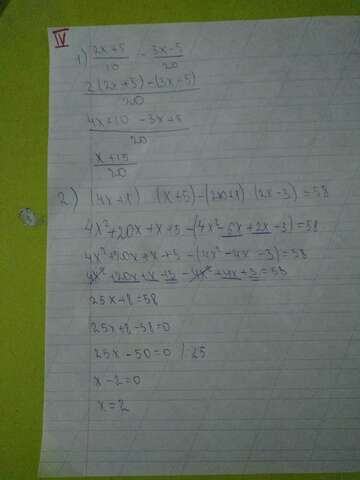 IV
1) (2x+5)/10 - (3x-5)/20
(2(2x+5)-(3x-5))/20
(4x+10-3x+5)/20
(x+15)/20
2) (4x+1) (x+5)-(2x+1) (2x-3)=58
4x²+20x+x+5-(4x²-6x+2x-3)=58
4x²+20x+x+5-(4x²-4x-3)=58
4x²+20x+x+5-4x²+4x+3=58
25x+8=58
25x+8-58=0
25x-50=0 /:25
x-2=0
x=2